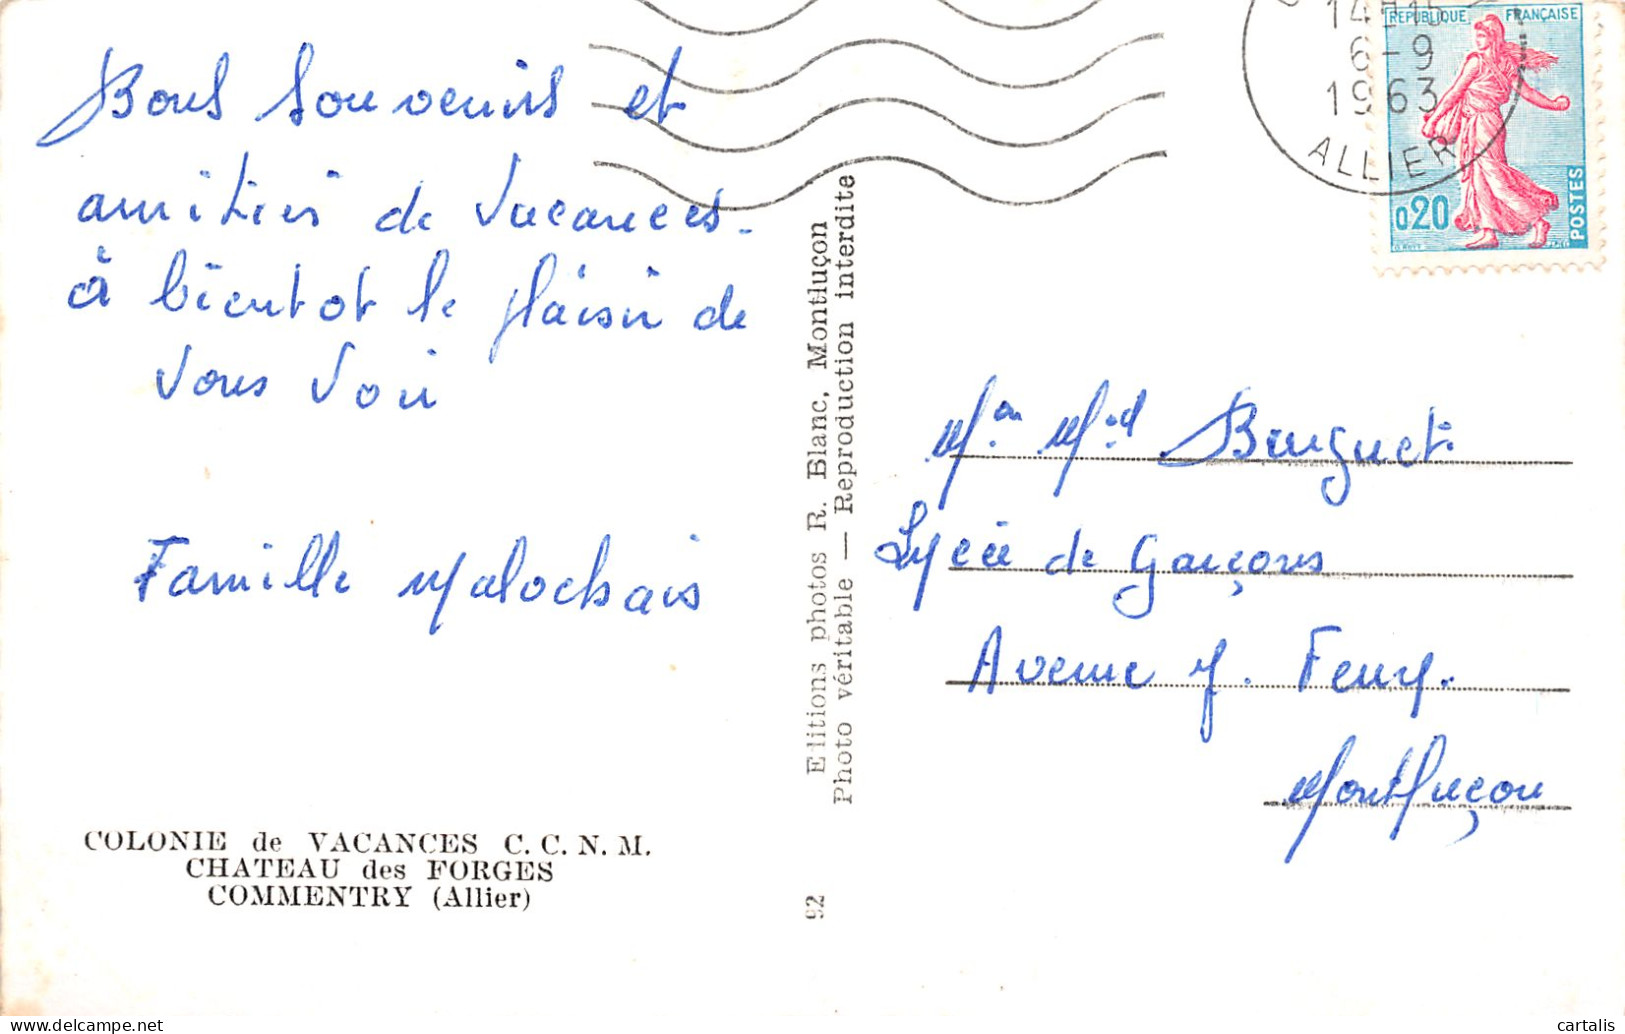 Bons Souvenirs et
amitiés de Vacances.
à bientot le plaisir de
Vous Voir
Famille Malochais
COLONIE de VACANCES C. C. N. M.
CHATEAU des FORGES
COMMENTRY (Allier)
Editions photos R. Blanc, Montluçon
Photo véritable — Reproduction interdite
92
14H15
6-9
1963
ALLIER
REPUBLIQUE FRANÇAISE
0,20
POSTES
Lycée de Garçons
Avenue J. Ferry.
Montluçon
cartalis